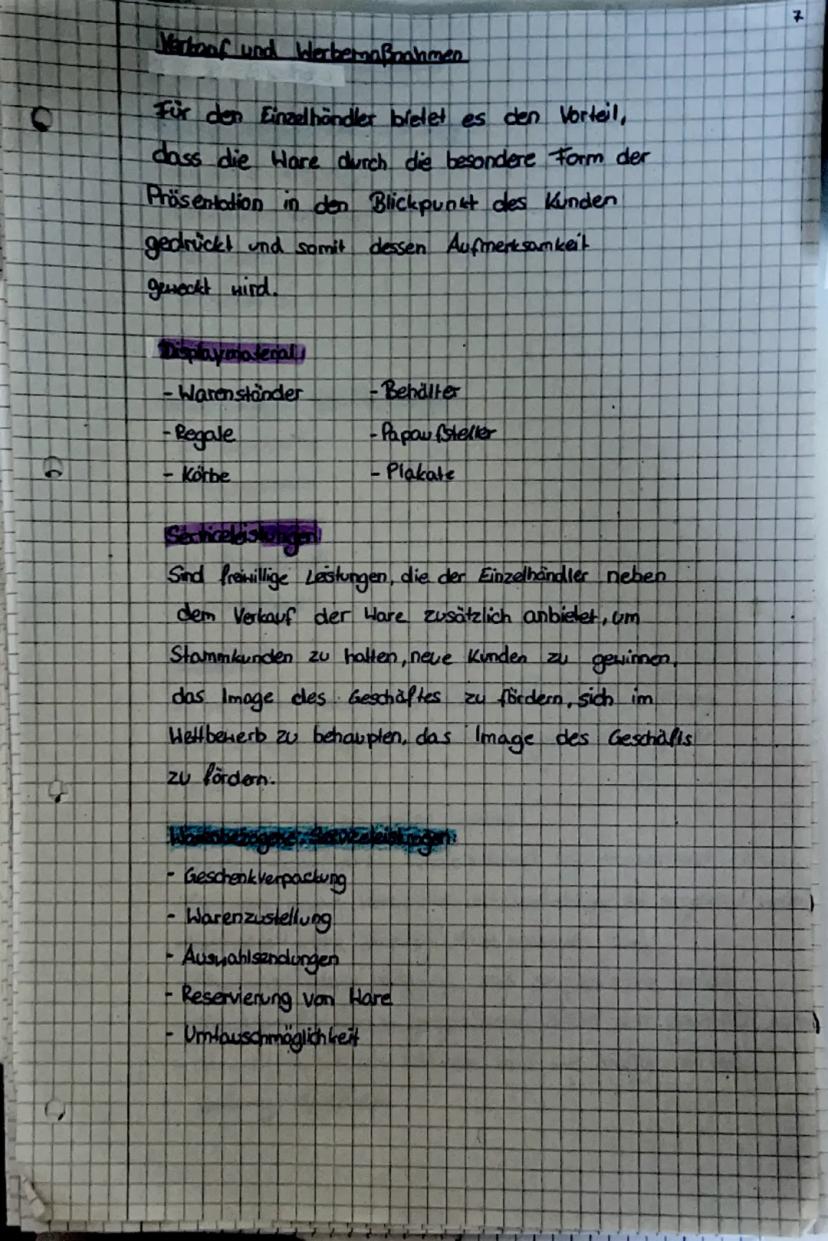 7
Verkauf und Werbemaßnahmen
Für den Einzelhändler bietet es den Vorteil,
dass die Ware durch die besondere Form der
Präsentation in den Blickpunkt des Kunden
gedrückt und somit dessen Aufmerksamkeit
geweckt wird.
Displaymaterial
- Warenständer - Behälter
- Regale - Papaufsteller
- Körbe - Plakate
Serviceleistungen
Sind freiwillige Leistungen, die der Einzelhändler neben
dem Verkauf der Ware zusätzlich anbietet, um
Stammkunden zu halten, neue Kunden zu gewinnen,
das Image des Geschäftes zu fördern, sich im
Wettbewerb zu behaupten, das Image des Geschäfts
zu fördern.
Warenbezogene Serviceleistungen:
- Geschenkverpackung
- Warenzustellung
- Auswahlsendungen
- Reservierung von Ware
- Umtauschmöglichkeit